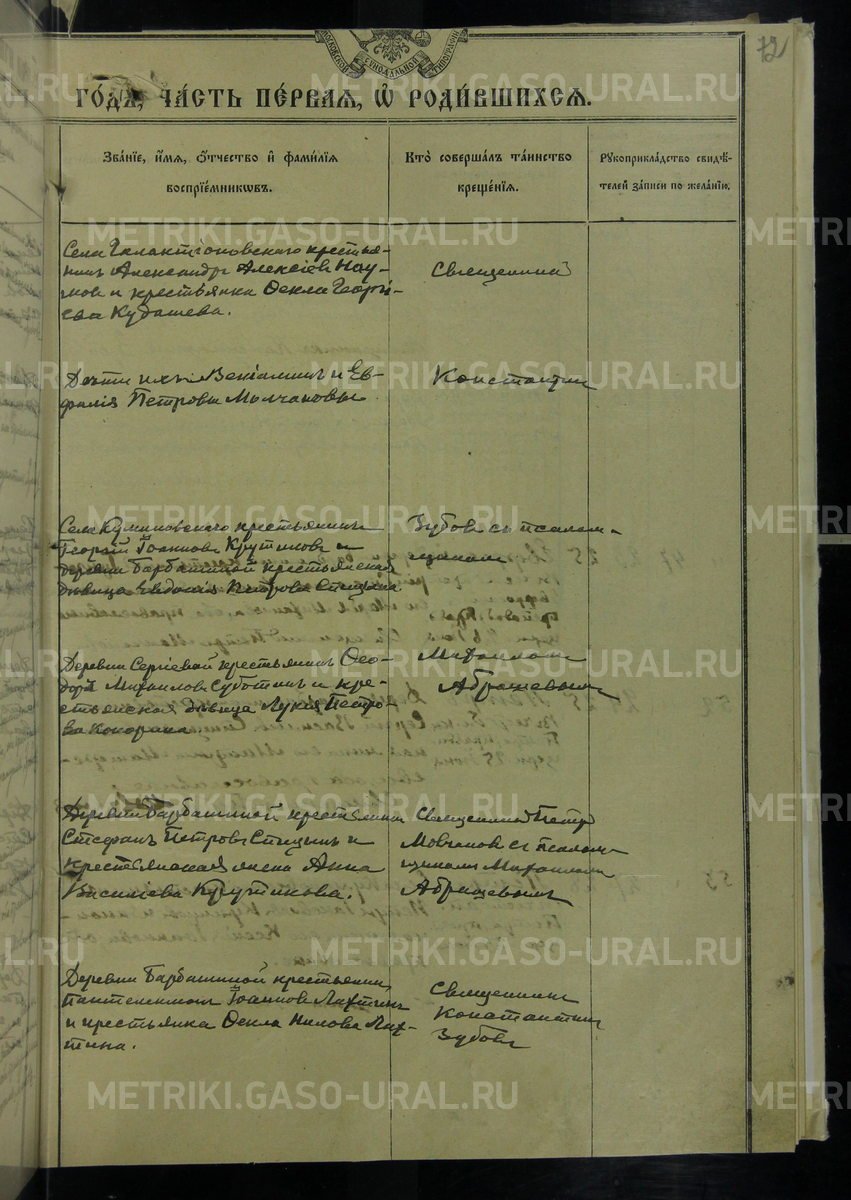 72
МОСКОВСКОЙ СѴНОДАЛЬНОЙ ТИПОГРАФІИ
ГО́ДА, ЧА́СТЬ ПЕ́РВАЯ, Ѽ РОДИ́ВШИХСЯ.
Зва́нїе, и҆́мѧ, ѻ҆́тчество и҆ фами́лїѧ
воспрїе́мникѡвъ.
Кто̀ соверша́лъ та́инство
креще́нїѧ.
Рꙋкоприкла́дство свидѣ́-
телей за́писи по жела́нїю.
Села Галактіоновскаго крестья-
нинъ Александръ Алексіев Нау-
мов и крестьянка Ѳекла Георгі-
ева Кудашева.
Священник
Дети ихъ Веніаминъ и Ев-
фалія Петровы Молчановы
Константин
Села Куминовскаго крестьянинъ
Георгій Іоаннов Крутиков и
деревни Барбашиной крестьянская
дѣвица Евдокія Петрова Спицына
Зубов съ псалом-
щиком
Деревни Сергіевой крестьянинъ Ѳео-
доръ Михаилов Суботинъ и кре-
стьянская дѣвица Лукія Петро-
ва Кокорина
Михаилом
Абрашевым
Деревни Барбашиной крестьянин
Стефанъ Петровъ Спицынъ и
крестьянская жена Анна
Василіева Крутикова.
Священник Петр
Молчанов съ псалом-
щиком Михаилом
Абрашевым
Деревни Барбашиной крестьянин
Пантелеимонъ Іоаннов Лахтинъ
и крестьянка Ѳекла Нилова Лах-
тина.
Священник
Константин
Зубов
METRIKI.GASO-URAL.RU